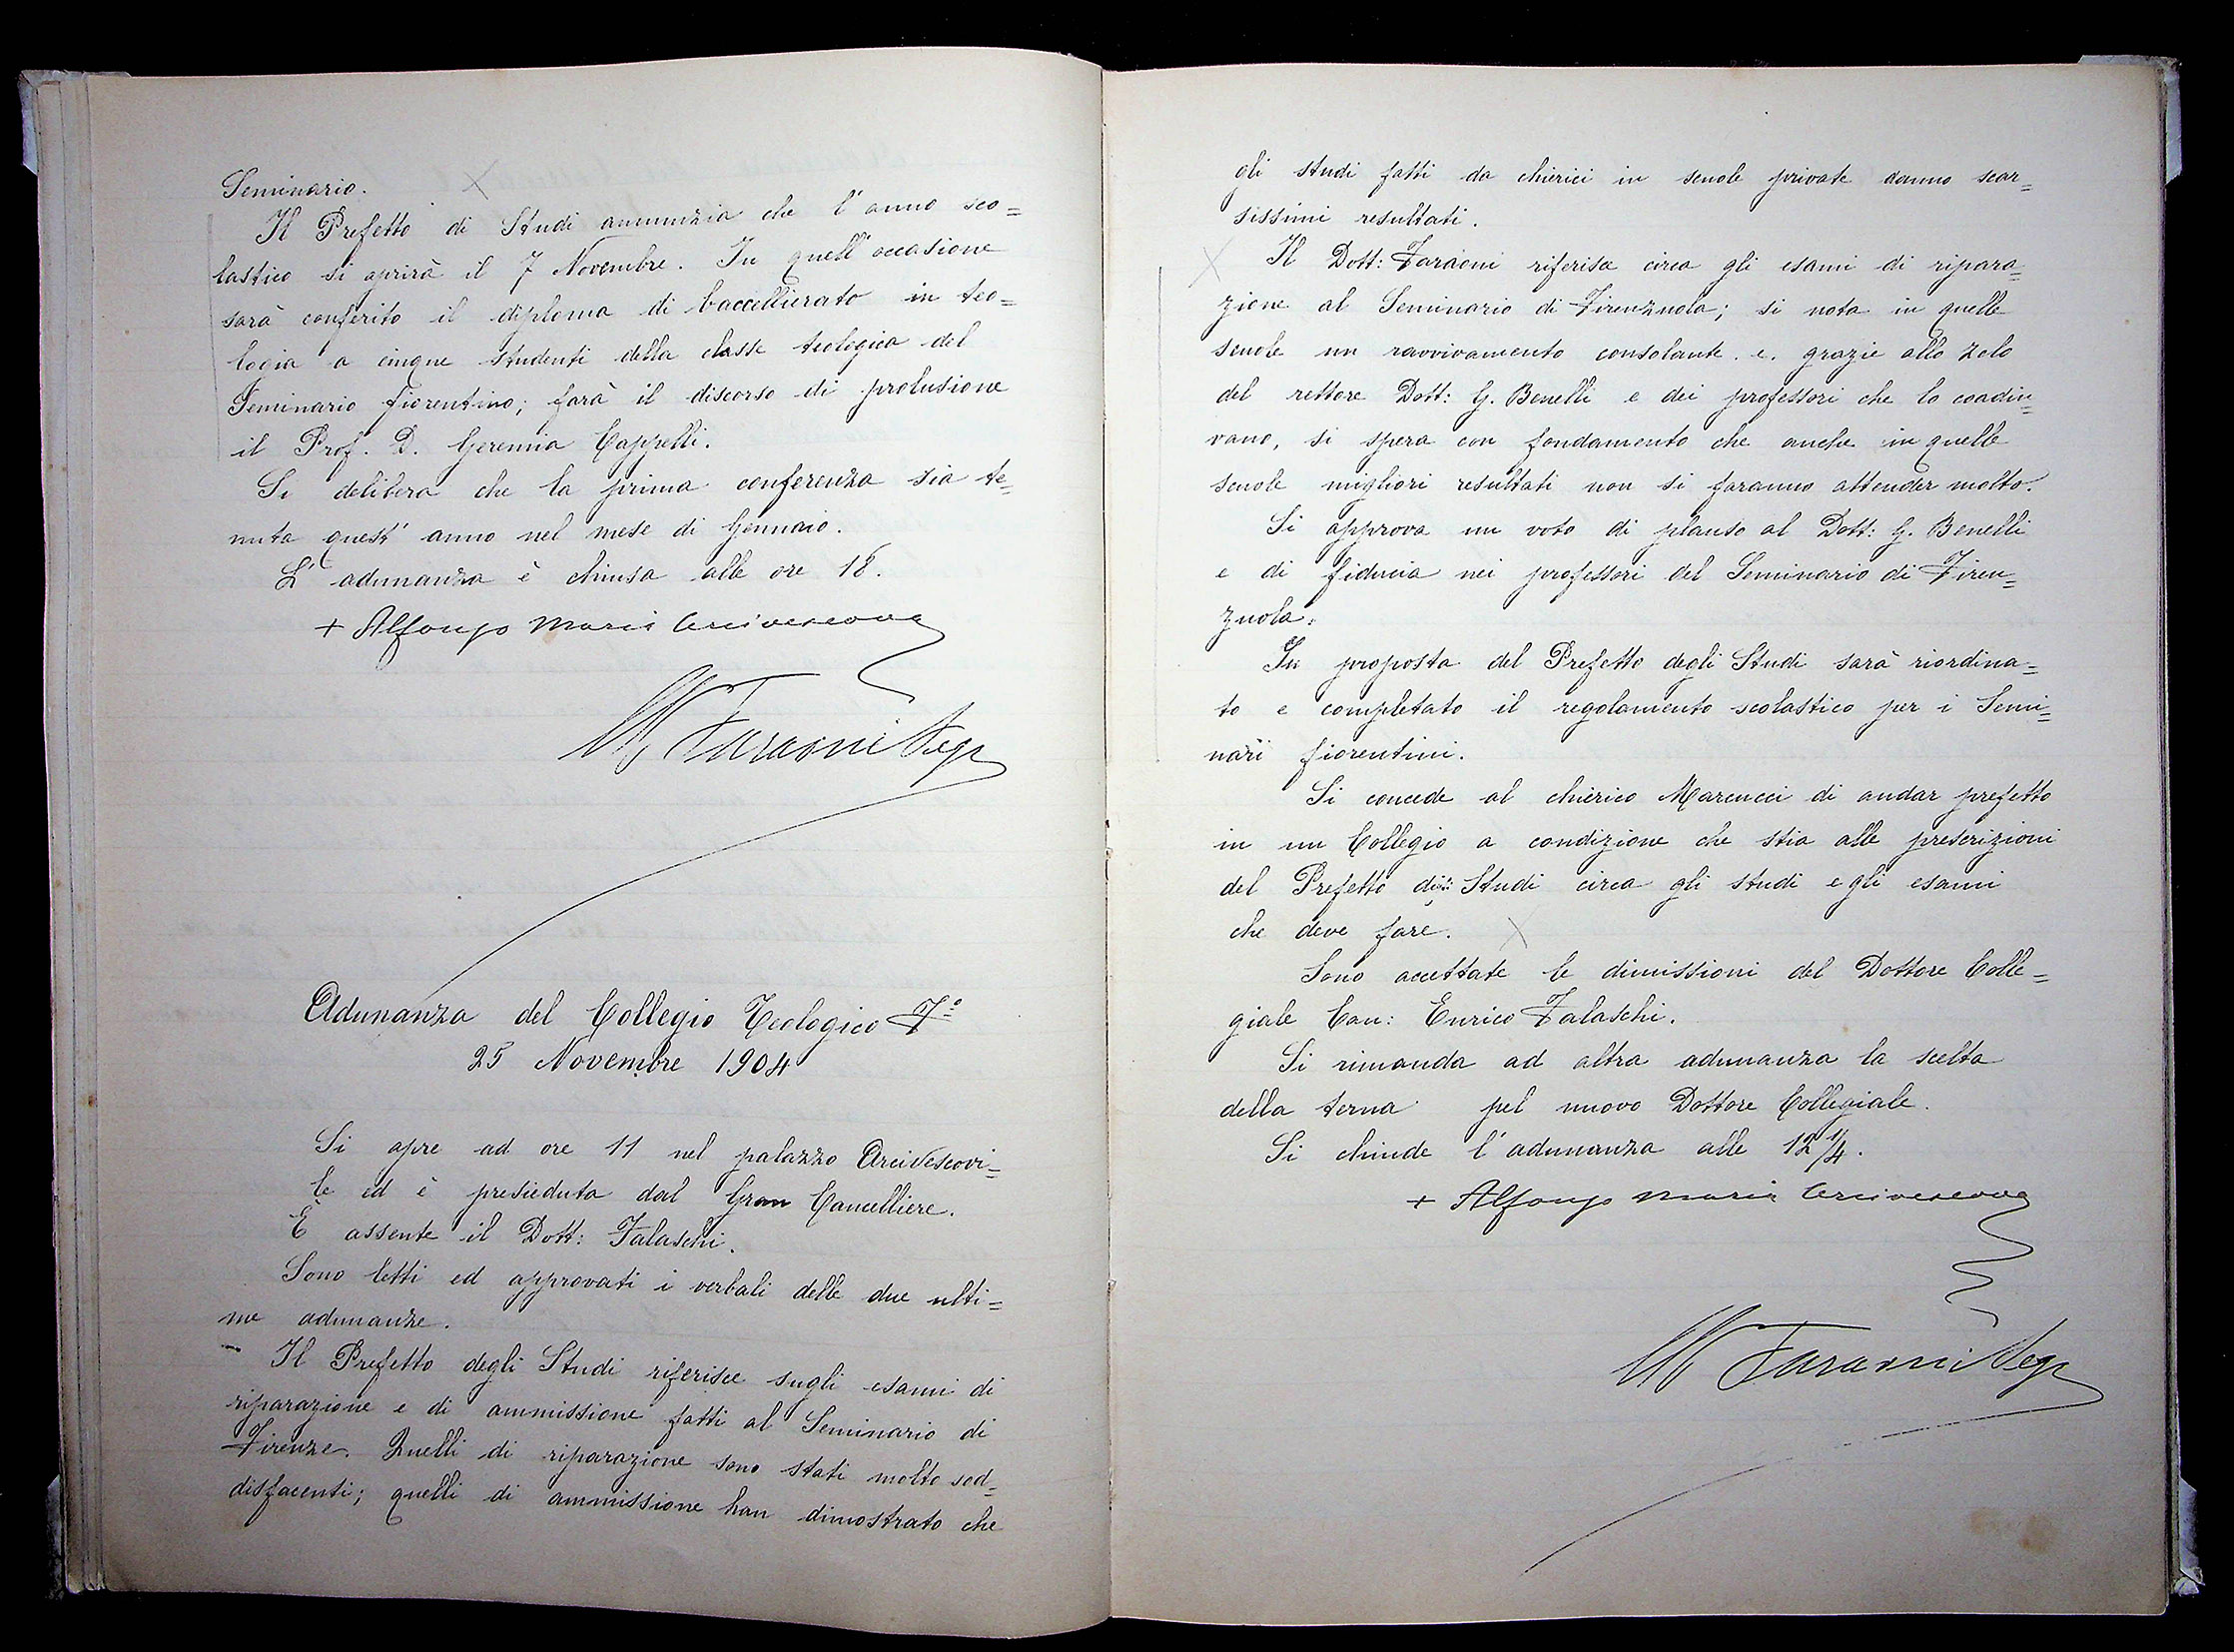 Seminario.
Il Prefetto di Studi annunzia che l'anno sco=
lastico si aprirà il 7 Novembre. In quell'occasione
sarà conferito il diploma di baccellierato in teo=
logia a cinque studenti della classe teologica del
Seminario fiorentino; farà il discorso di prolusione
il Prof. D. Geremia Cappelli.
Si delibera che la prima conferenza sia te=
nuta quest'anno nel mese di Gennaio.
L'adunanza è chiusa alle ore 18.
+ Alfonso Maria Arcivescovo
Faraoni Segr
Adunanza del Collegio Teologico F.º
25 Novembre 1904
Si apre ad ore 11 nel palazzo Arcivescovi=
le ed è presieduta dal Gran Cancelliere.
È assente il Dott: Falaschi.
Sono letti ed approvati i verbali delle due ulti=
me adunanze.
Il Prefetto degli Studi riferisce sugli esami di
riparazione e di ammissione fatti al Seminario di
Firenze. Quelli di riparazione sono stati molto sod=
disfacenti; quelli di ammissione han dimostrato che
gli studi fatti da chierici in scuole private danno scar=
sissimi resultati.
Il Dott: Faraoni riferisce circa gli esami di ripara=
zione al Seminario di Firenzuola; si nota in quelle
scuole un ravvivamento consolante e, grazie allo zelo
del rettore Dott: G. Benelli e dei professori che lo coadiu=
vano, si spera con fondamento che anche in quelle
scuole migliori resultati non si faranno attender molto.
Si approva un voto di plauso al Dott: G. Benelli
e di fiducia nei professori del Seminario di Firen=
zuola.
Su proposta del Prefetto degli Studi sarà riordina=
to e completato il regolamento scolastico per i Semi=
nari fiorentini.
Si concede al chierico Marcucci di andar prefetto
in un Collegio a condizione che stia alle prescrizioni
del Prefetto di Studi circa gli studi e gli esami
che deve fare.
Sono accettate le dimissioni del Dottore Colle=
giale Can: Enrico Falaschi.
Si rimanda ad altra adunanza la scelta
della terna pel nuovo Dottore Collegiale.
Si chiude l'adunanza alle 12 1/4.
+ Alfonso Maria Arcivescovo
Faraoni Segr